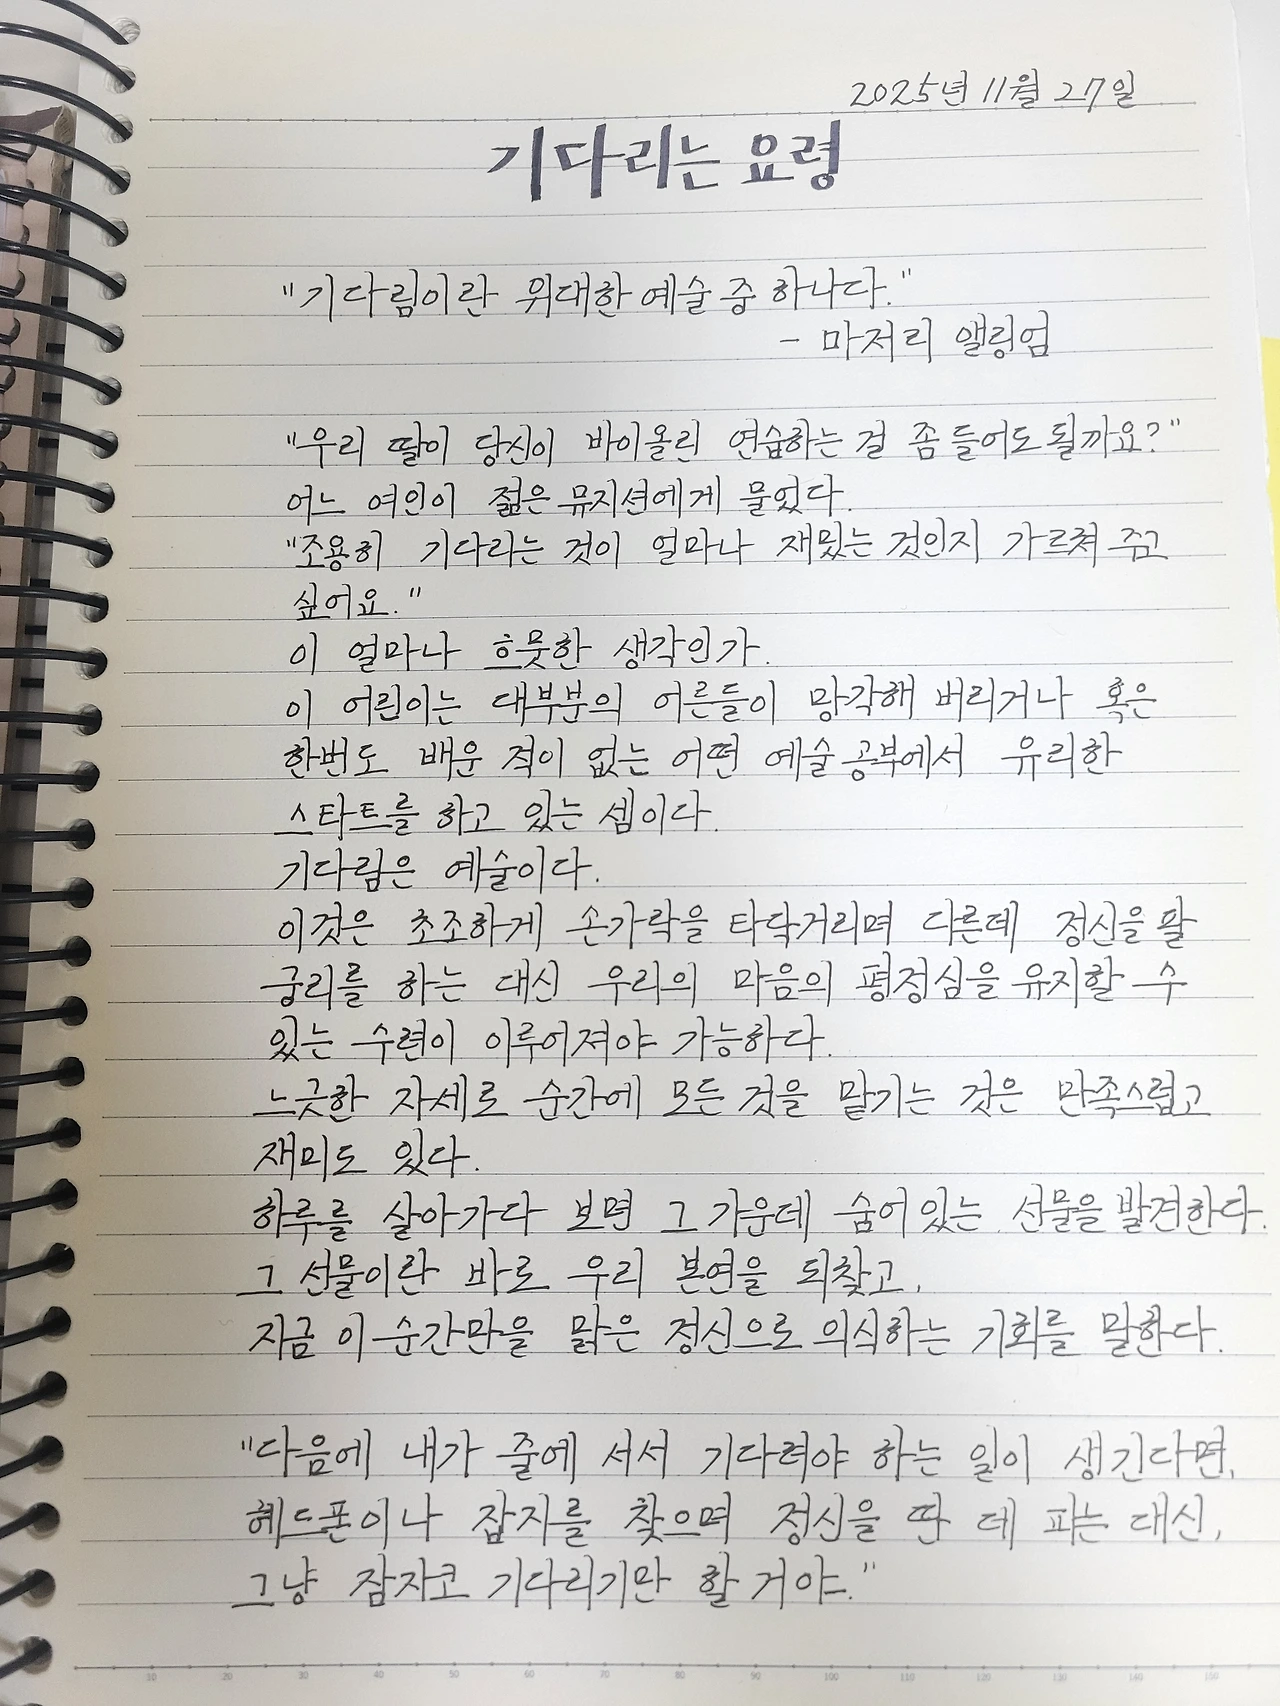 2025년 11월 27일
기다리는 요령
"기다림이란 위대한 예술 중 하나다."
- 마저리 앨링엄
"우리 딸이 당신이 바이올린 연습하는 걸 좀 들어도 될까요?"
어느 여인이 젊은 뮤지션에게 물었다.
"조용히 기다리는 것이 얼마나 재밌는 것인지 가르쳐 주고
싶어요."
이 얼마나 흐뭇한 생각인가.
이 어린이는 대부분의 어른들이 망각해 버리거나 혹은
한번도 배운 적이 없는 어떤 예술 공부에서 유리한
스타트를 하고 있는 셈이다.
기다림은 예술이다.
이것은 초조하게 손가락을 타닥거리며 다른데 정신을 팔
궁리를 하는 대신 우리의 마음의 평정심을 유지할 수
있는 수련이 이루어져야 가능하다.
느긋한 자세로 순간에 모든 것을 맡기는 것은 만족스럽고
재미도 있다.
하루를 살아가다 보면 그 가운데 숨어있는 선물을 발견한다.
그 선물이란 바로 우리 본연을 되찾고,
지금 이 순간만을 맑은 정신으로 의식하는 기회를 말한다.
"다음에 내가 줄에 서서 기다려야 하는 일이 생긴다면,
헤드폰이나 잡지를 찾으며 정신을 딴 데 파는 대신,
그냥 잠자코 기다리기만 할 거야."
10 20 30 40 50 60 70 80 90 100 110 120 130 140 150